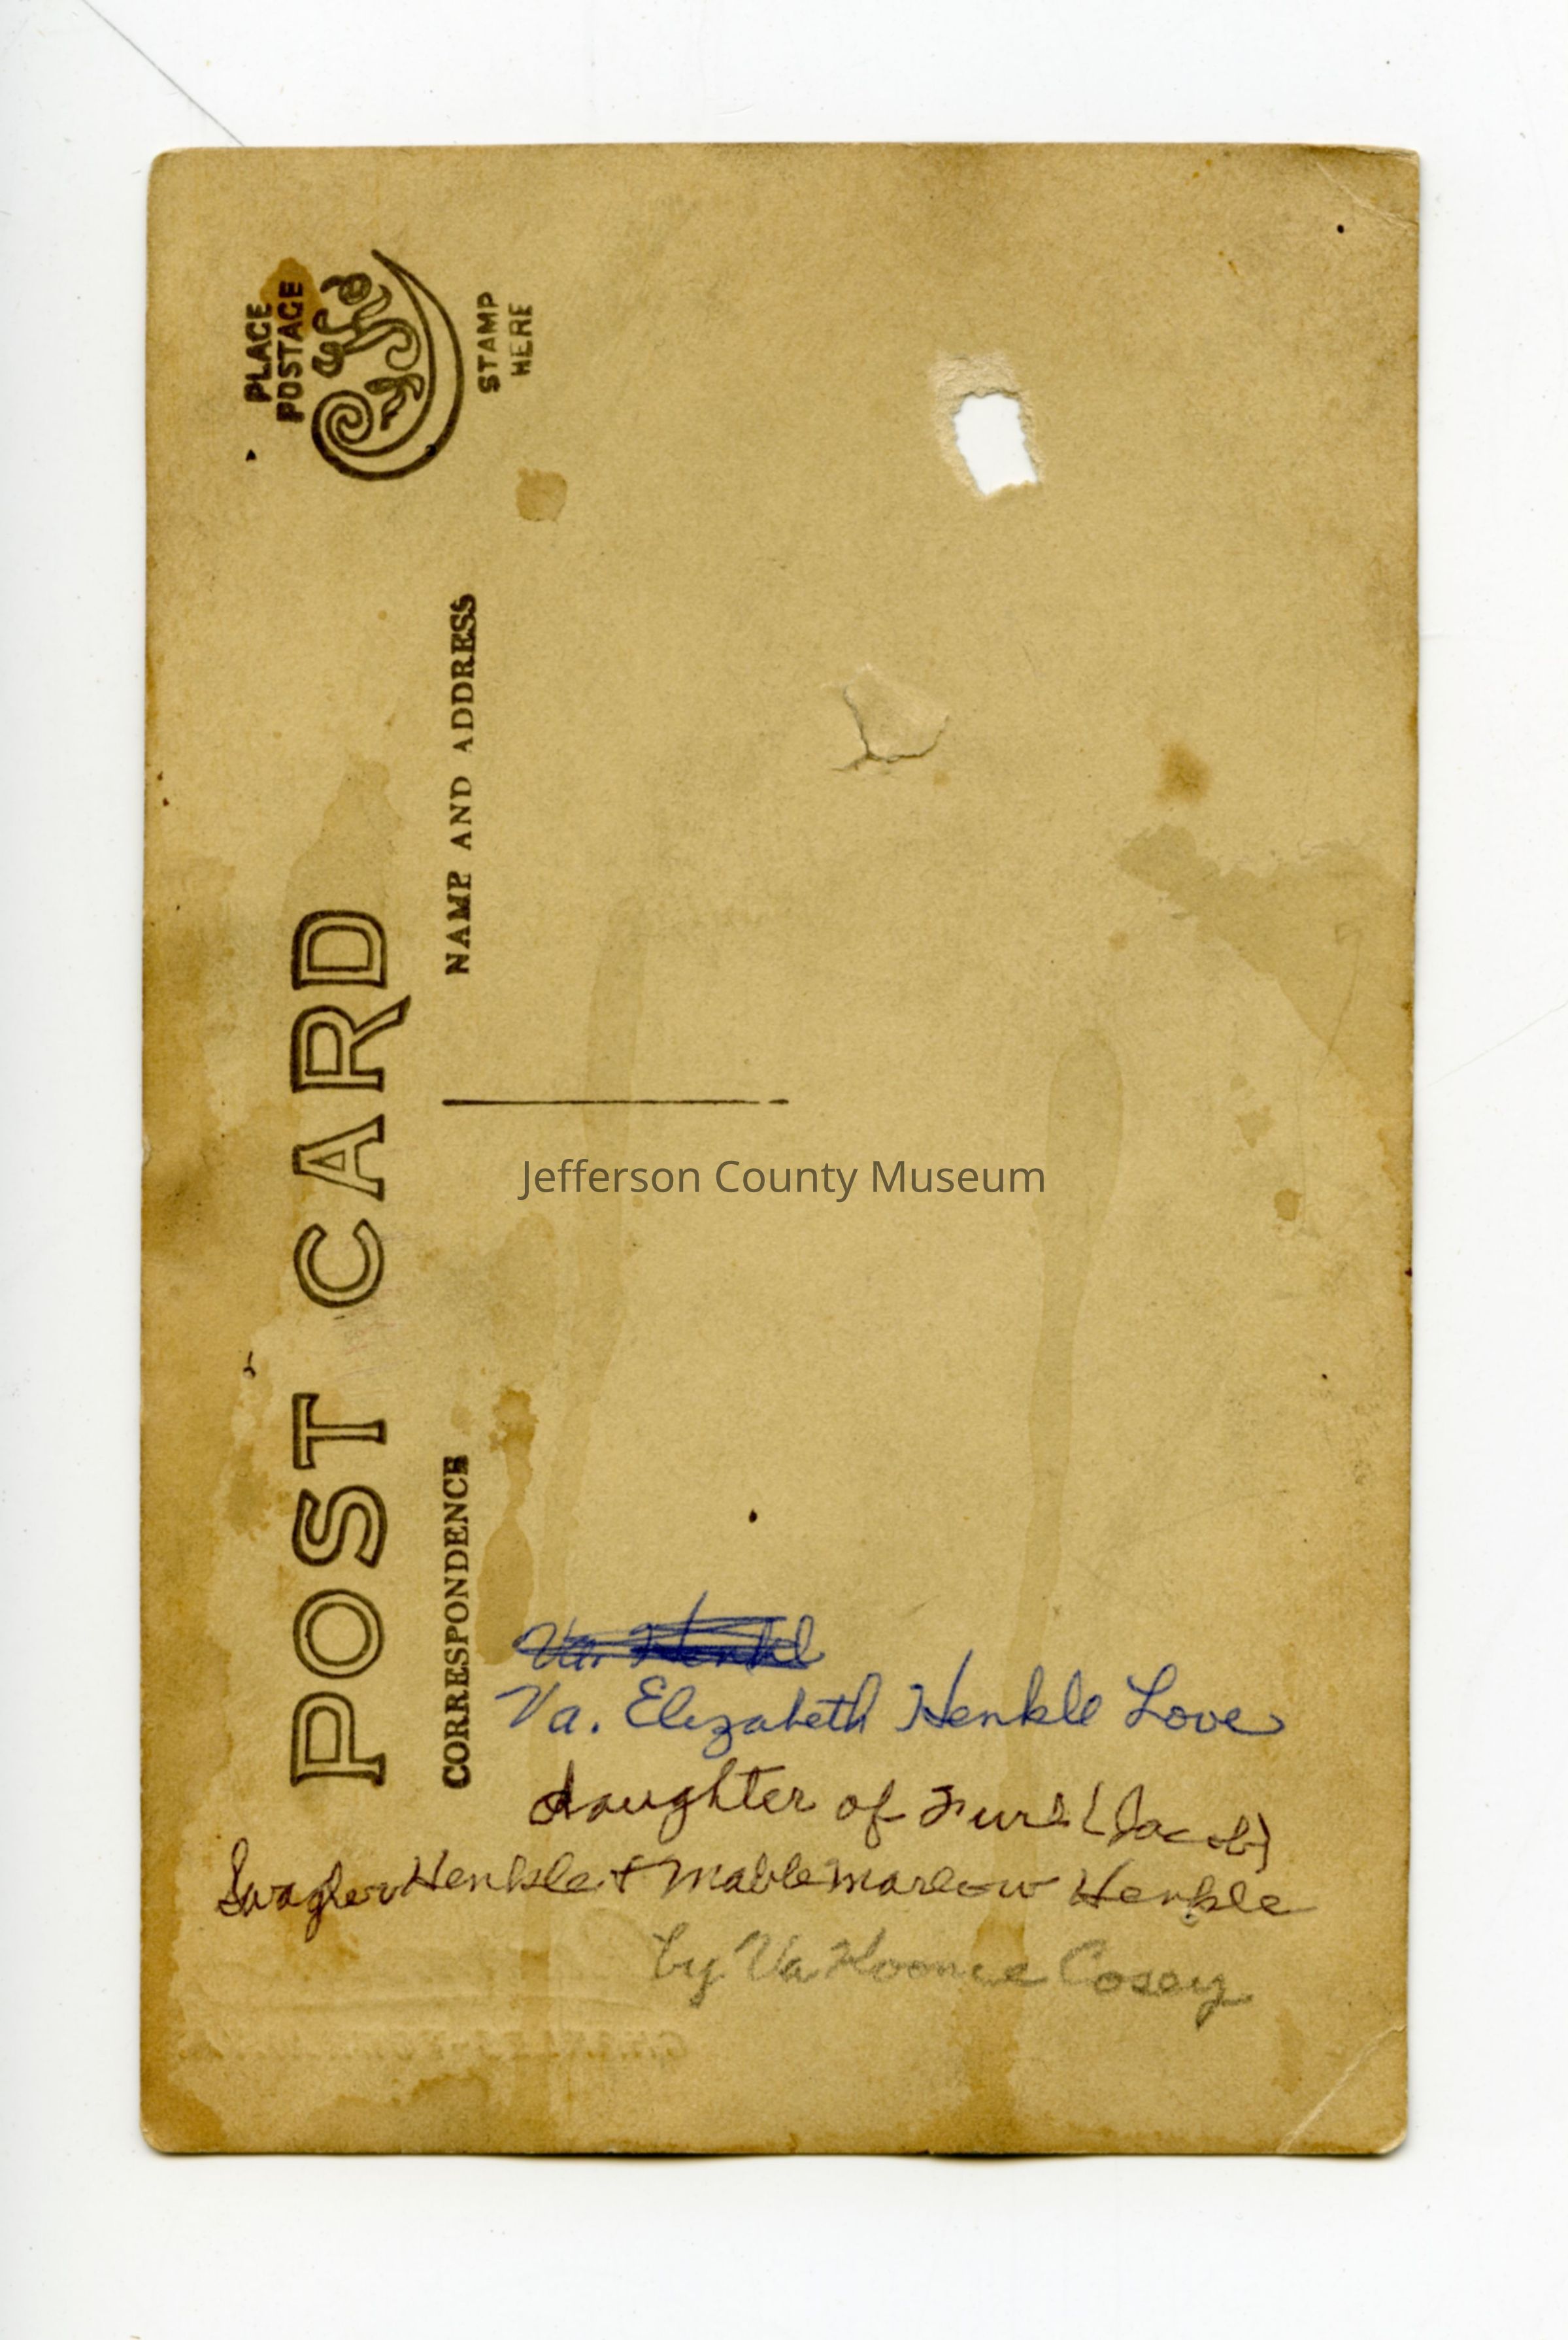 PLACE
POSTAGE
STAMP
HERE
POST CARD
NAME AND ADDRESS
CORRESPONDENCE
Jefferson County Museum
Va. Henkl
Va. Elizabeth Henkle Love
daughter of (Jacob)
Swagler Henkle & Mable Marlow Henkle
by Va Koonce Cosey